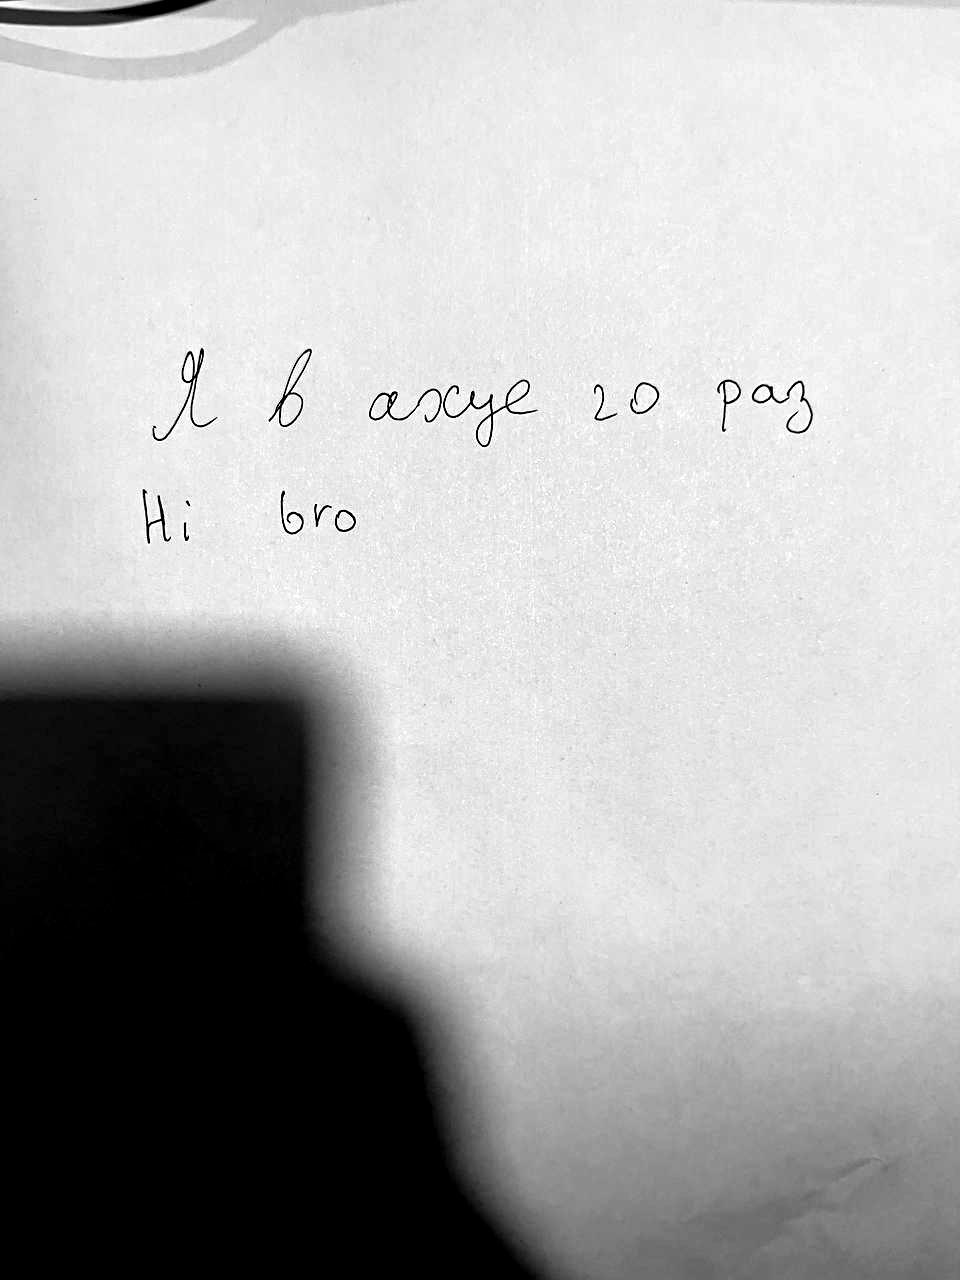 Я в ахуе 20 раз
Hi bro